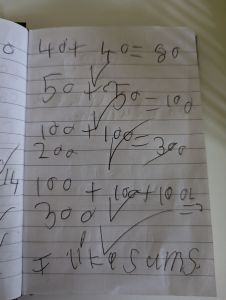 40+ 40=80
50 + 50=100
100+100=
200
300
100 + 100+100=
300
I like sums.